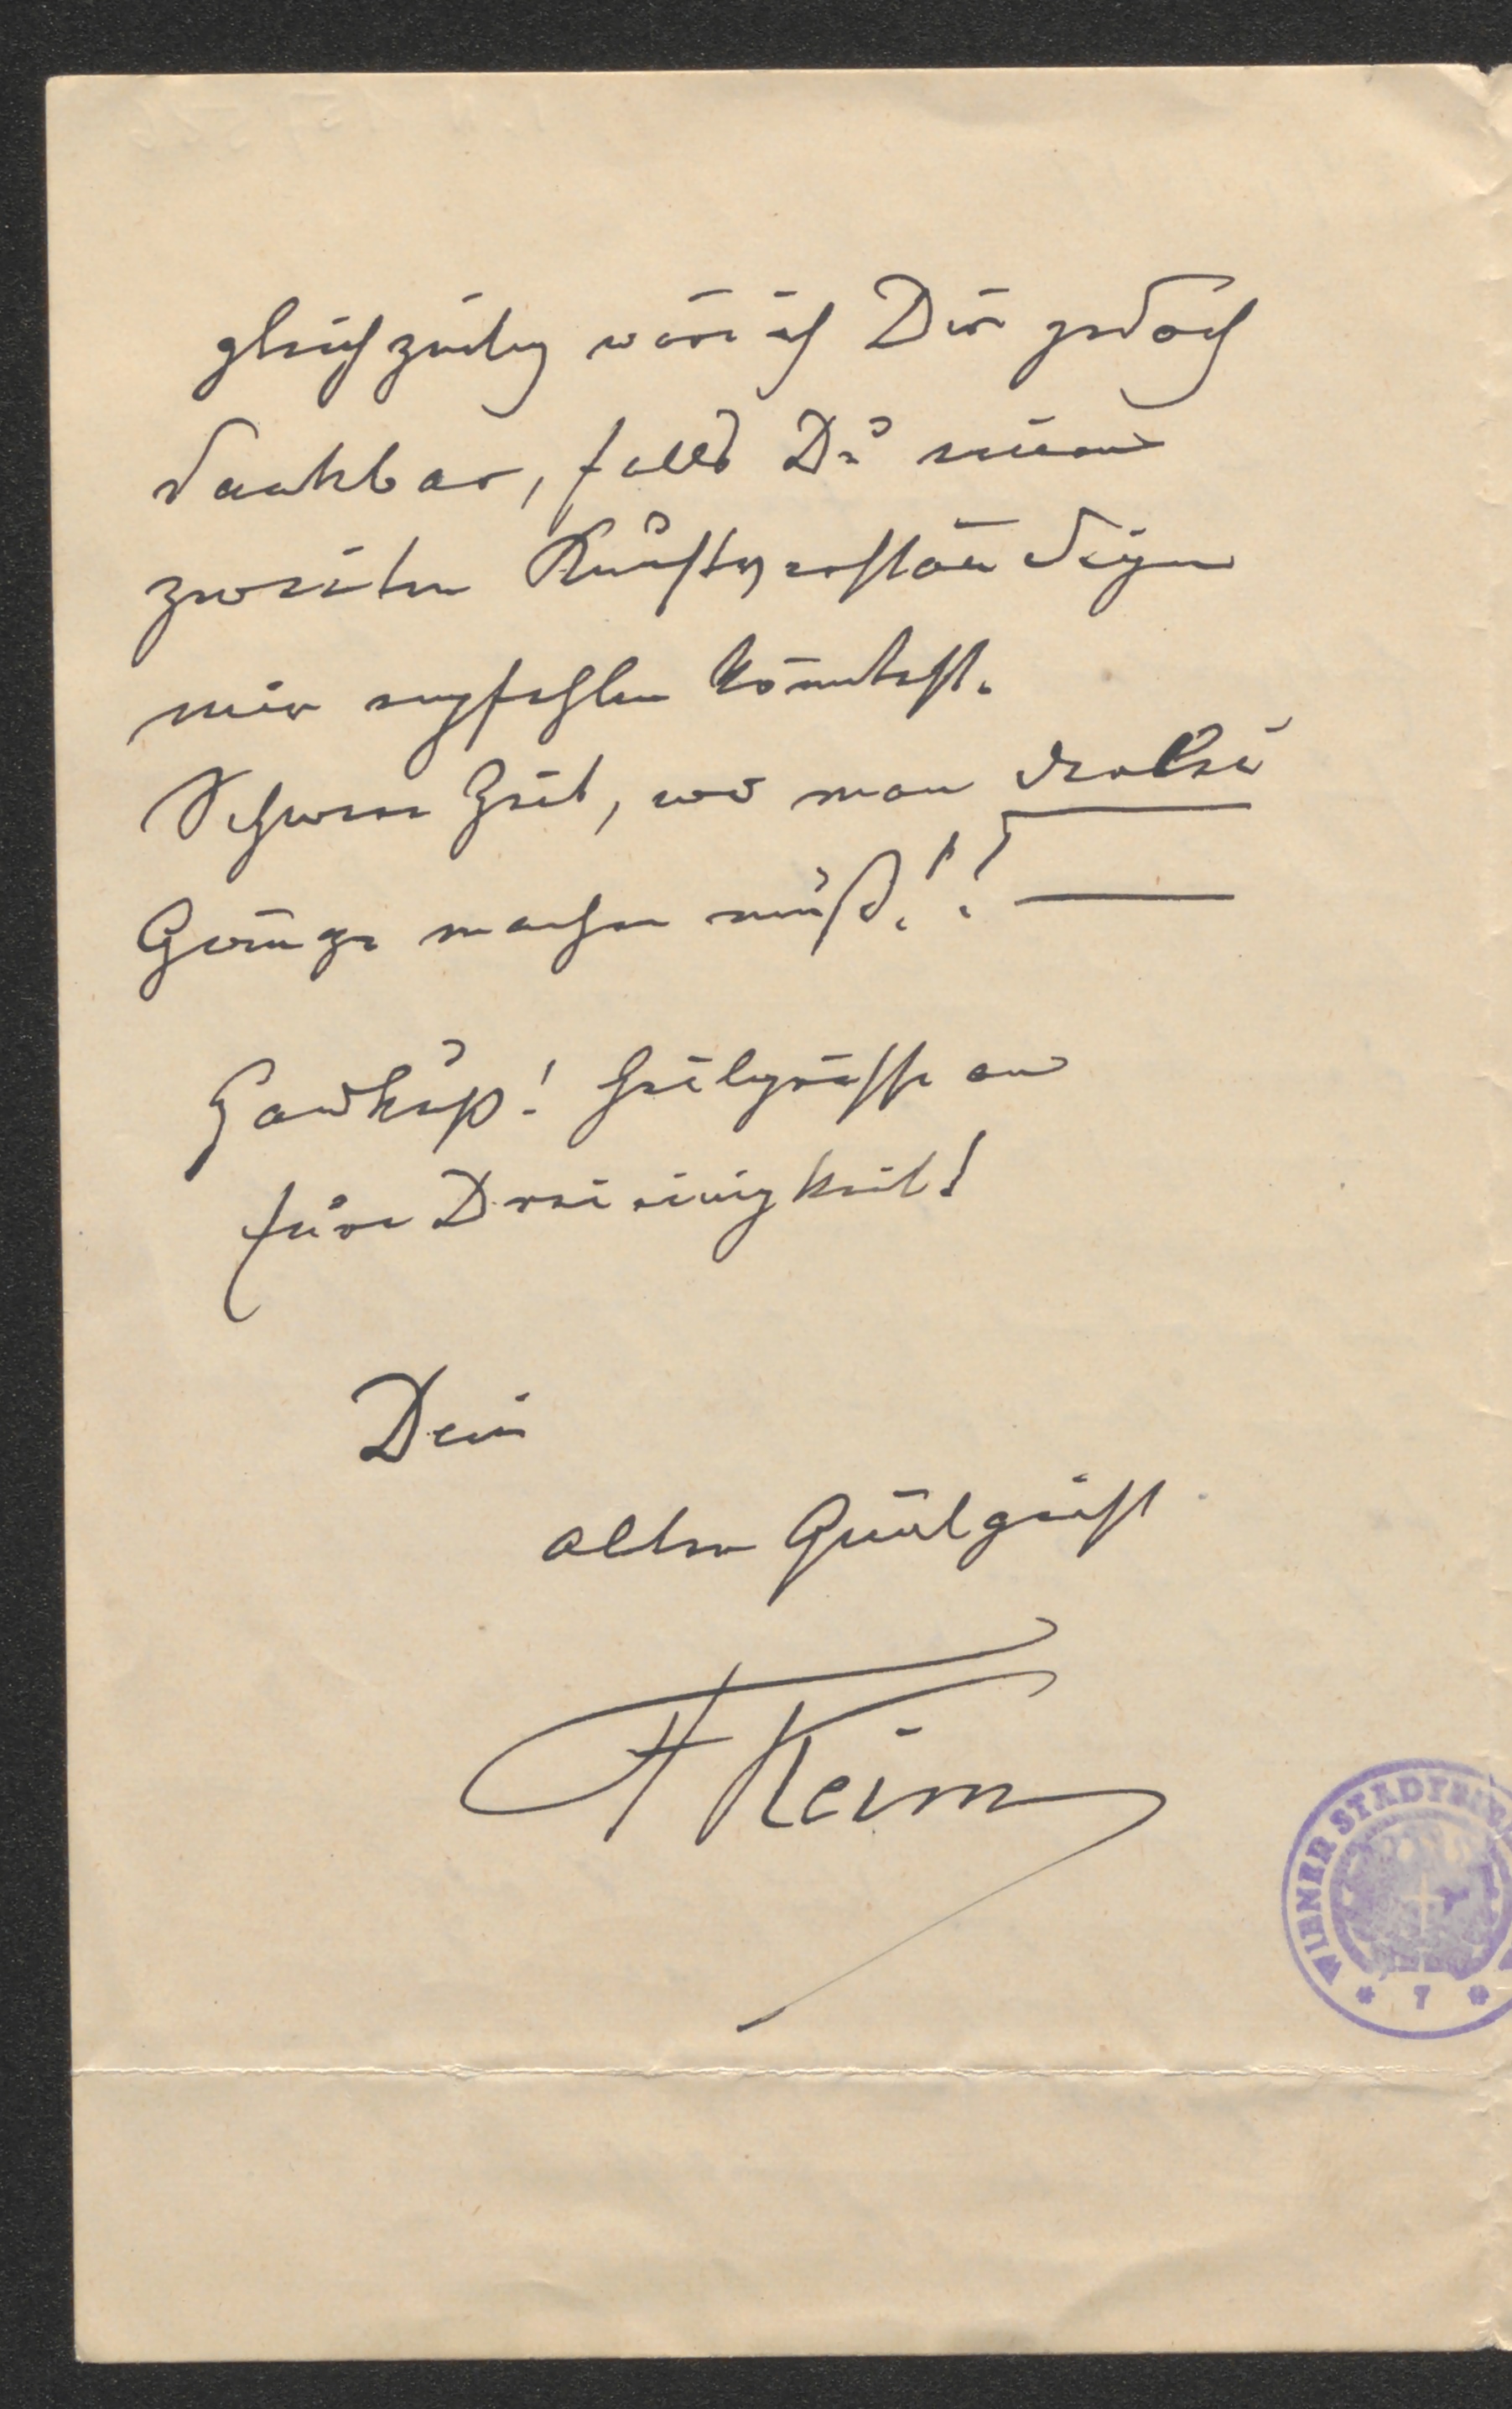 gleichzeitig wäre ich Dir jedoch
dankbar, falls Du einen
zweiten Kunstverständigen
mir empfehlen könntest.
Schwere Zeit, wo man
Gänge machen muß!! —
Handkuß! Heilgrüsse an
Eure Dreieinigkeit!
Dein
alter Quälgeist
F Keim
WIENER STADTBI
* 7 *